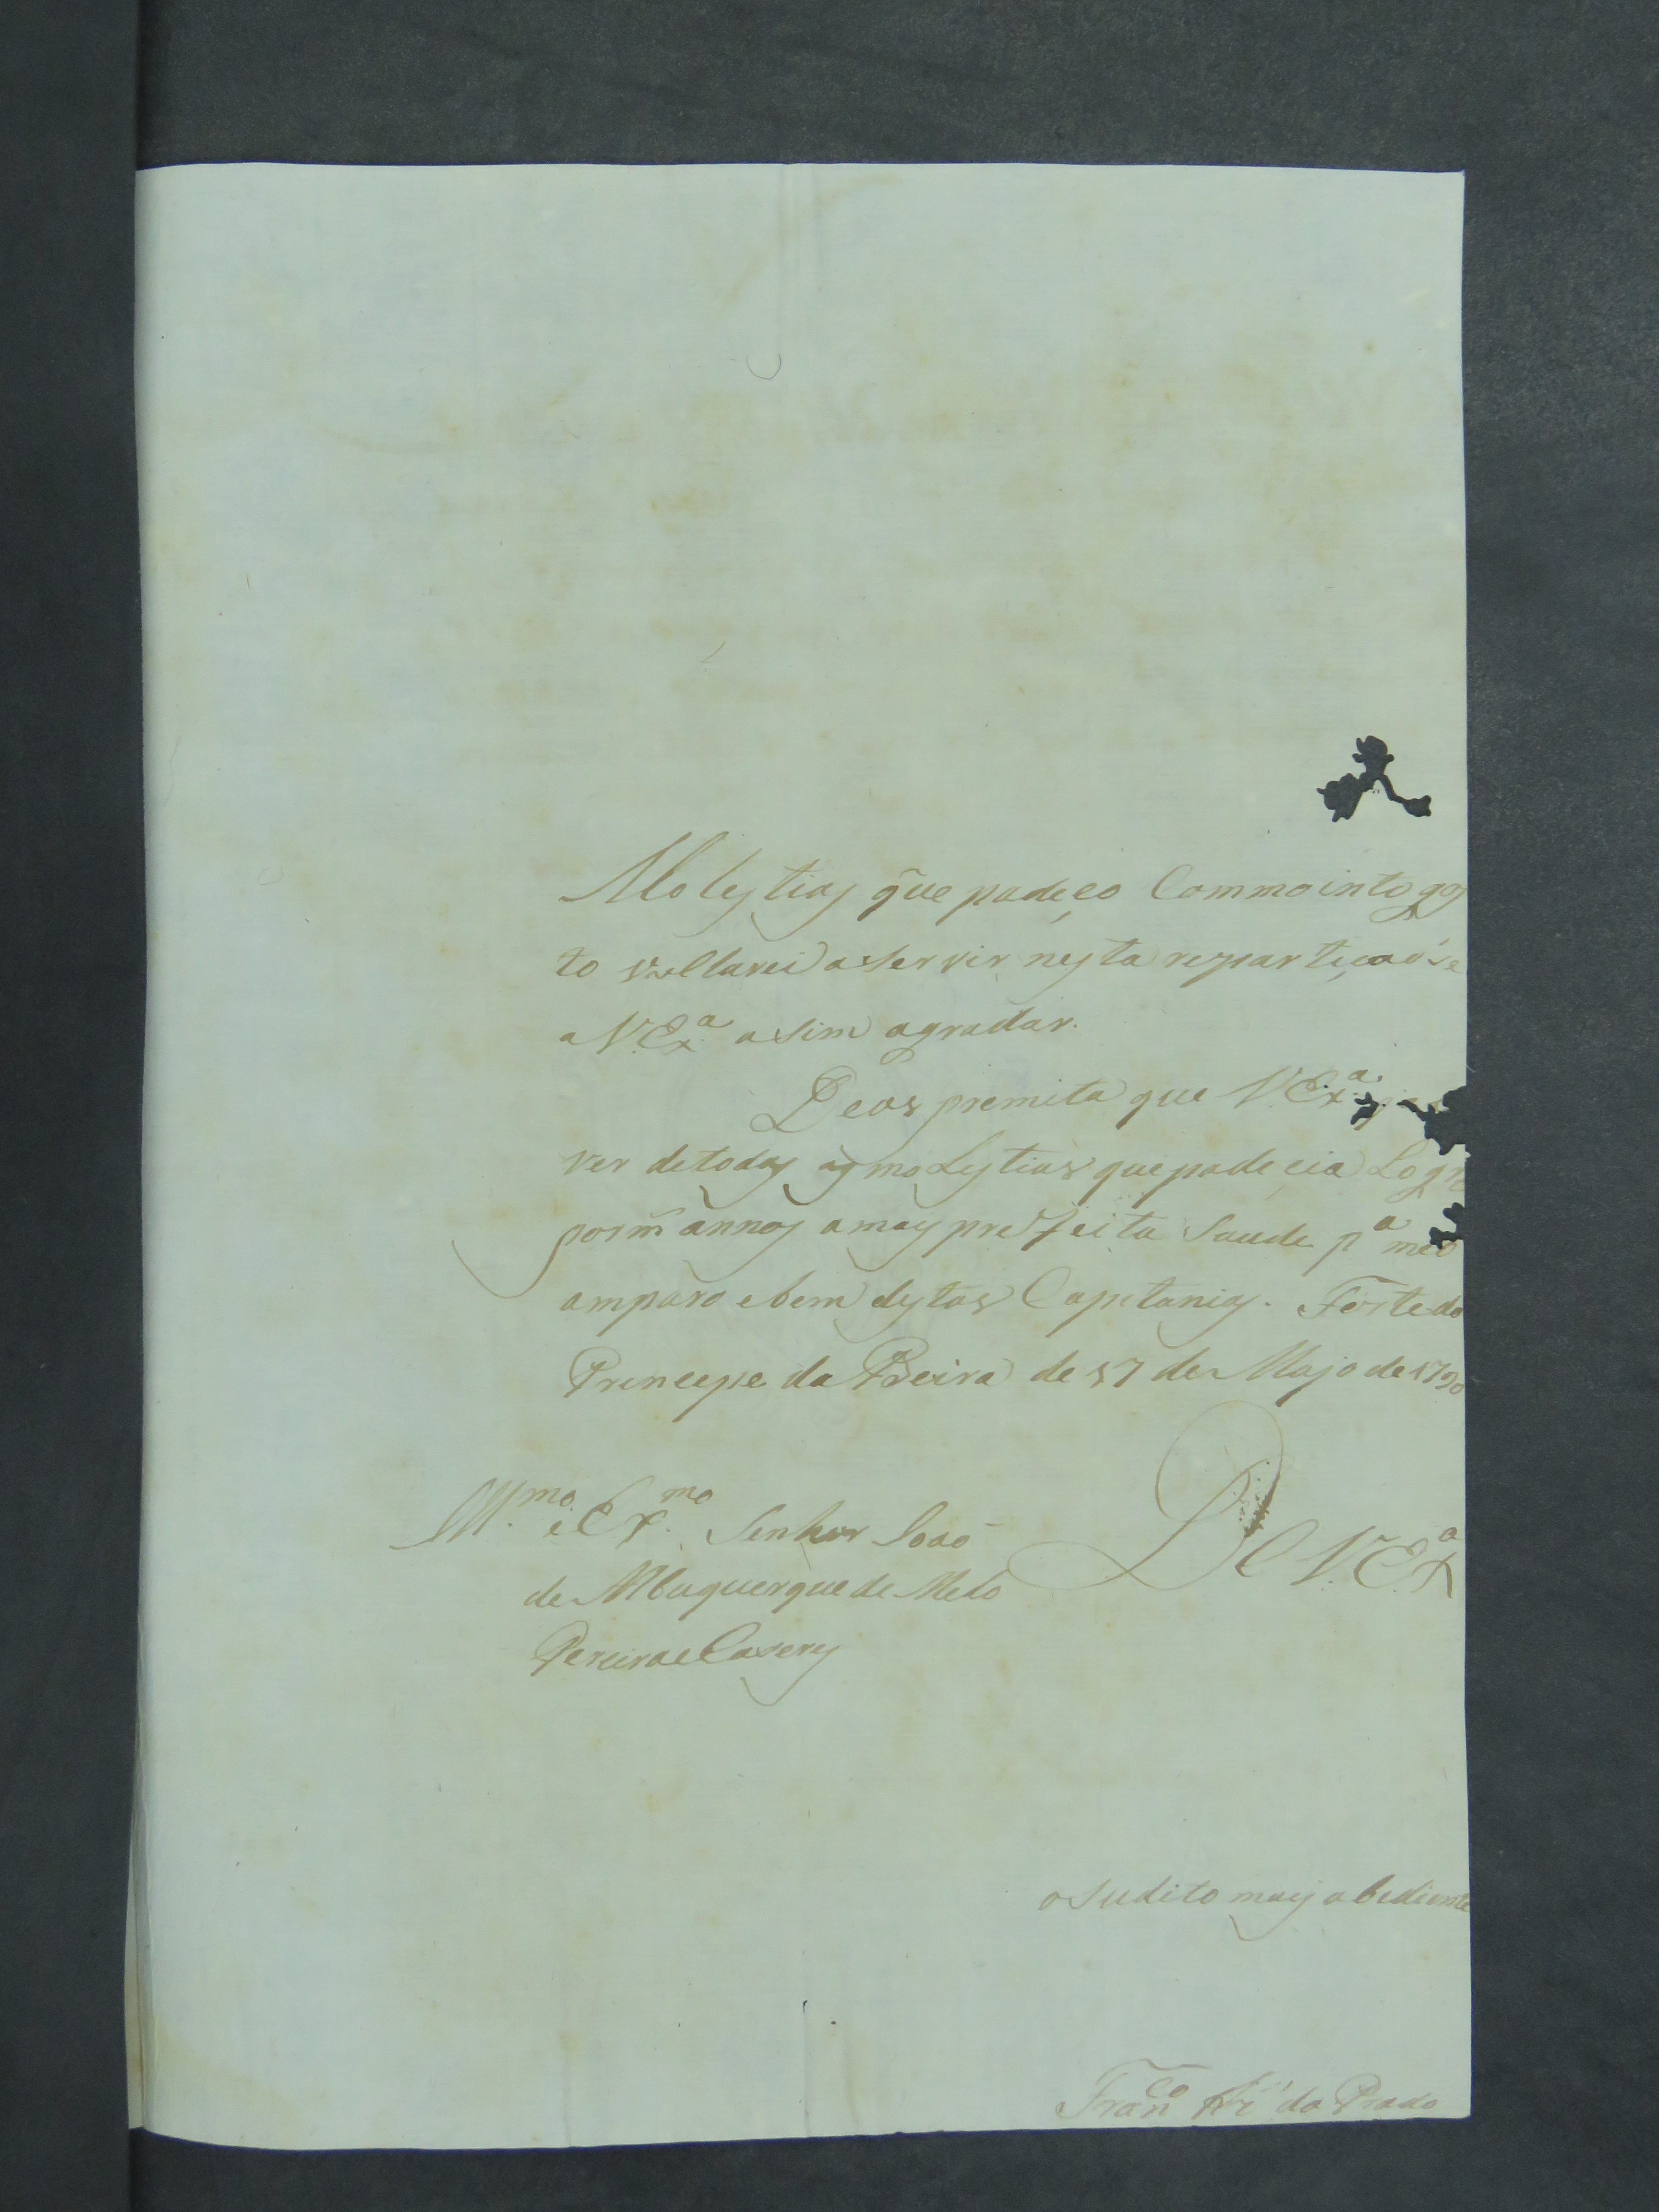 Molestias q̃ue padeço Commointo gos
to volltarei aservir nesta repartiçaõ se
a V.Exª asim agradar.
Deos premita que V.Exª
ver detodas as molestias que padecia Logre
por m̃ annos a mais prefeita Saude pª meo
amparo ebem destas Capitanias. Forte do
Princepe da Beira de 17 de Majo de 1790
Ill.mo e Ex.mo Senhor Joaõ
de Albuquerque de Melo
Pereira e Caseres
De V.Exª
o sudito mais obediente
Franco Roiz do Prado